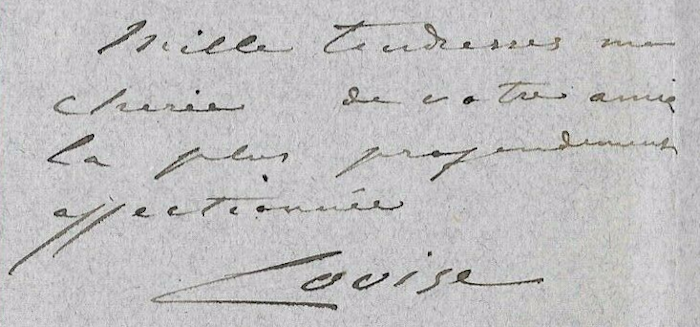 Mille tendresses ma
cherie de votre amie
la plus profondement
affectionnée
Louise